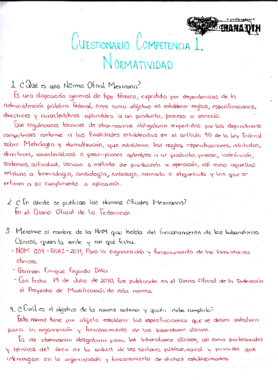 DIANA QTH
CUESTIONARIO COMPETENCIA 1.
NORMATIVIDAD
1. ¿Qué es una Norma Oficial Mexicana?
Es una disposición general de tipo técnico, expedida por dependencias de la
administración pública federal, cuyo como objetivo es establecer reglas, especificaciones,
directrices y características aplicables a un producto, proceso o servicio.
Son regulaciones técnicas de observancia obligatoria expedidas por las dependencias
competentes conforme a las finalidades establecidas en el artículo 40 de la Ley Federal
sobre Metrología y Normalización, que establecen las reglas, especificaciones, atributos,
directrices, características o prescripciones aplicables a un producto, proceso, instalación,
sistema, actividad, servicio o método de producción u operación, así como aquellas
relativas a terminología, simbología, embalaje, marcado o etiquetado y las que se
refieran a su cumplimiento o aplicación.
2. ¿En dónde se publican las Normas Oficiales Mexicanas?
En el Diario Oficial de la Federación
3. Mencione el nombre de la NOM que habla del funcionamiento de los laboratorios
clínicos, quien la emite y con qué fecha.
- NOM-007-SSA3-2011, Para la organización y funcionamiento de los laboratorios
clínicos.
- Germán Enrique Fajardo Dolci
- Con fecha 19 de Julio de 2010, fue publicado en el Diario Oficial de la Federación
el Proyecto de Modificación de esta norma.
4. ¿Cuál es el objetivo de la norma anterior y quién debe cumplirla?
Esta norma tiene por objeto establecer las especificaciones que se deben satisfacer
para la organización y funcionamiento de los laboratorios clínicos.
Es de observancia obligatoria para los laboratorios clínicos, así como profesionales
y técnicos del área de la salud de los sectores público, social y privado que
intervengan en la organización y funcionamiento de dichos establecimientos.